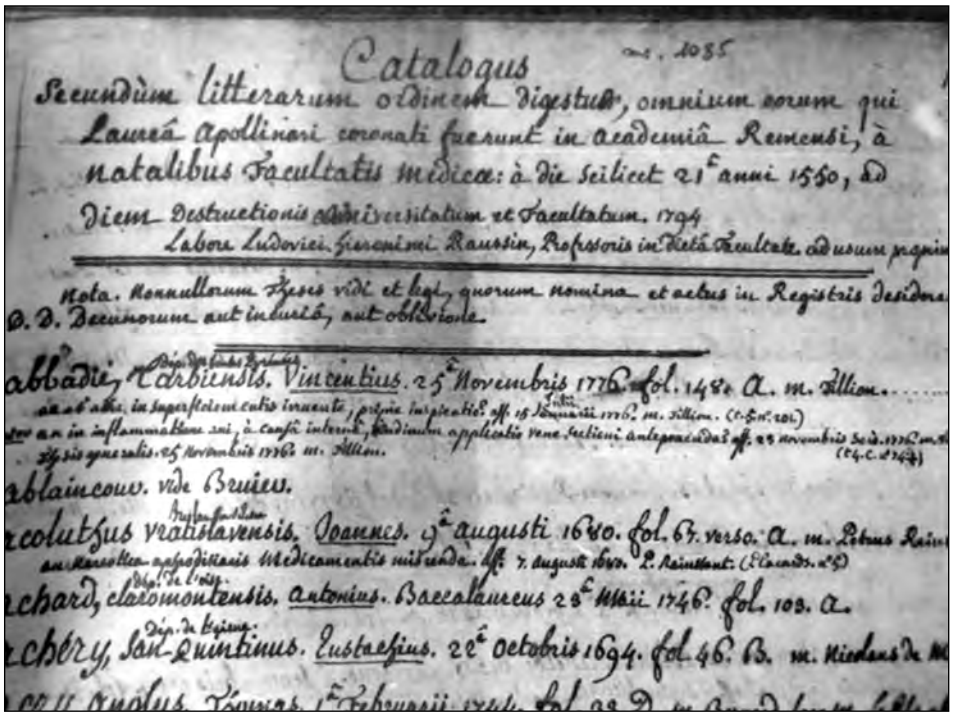 ms. 1085
Catalogus
Secundùm litterarum ordinem digestus, omnium eorum qui
Laureâ Apollinari coronati fuerunt in academiâ Remensi, à
natalibus Facultatis medicæ: à die scilicet 21ª anni 1550, ad
Diem Destructionis universitatum et Facultatum. 1794
Labore Ludovici Hieronimi Raussin, Professoris in dictâ Facultate ad usum
nota. Nonnullorum Theses vidi et legi, quorum nomina et actus in Registris desidera
D. D. Decanorum aut incuriâ, aut oblivione.
abbadie, Tarbiensis. Vincentius. 25ª Novembris 1776. fol. 148. A. m. Fillion.
in superficiem cutis aff. 15 Januarii 1776. m. Fillion.
an in inflammatione à causâ internâ, hirudinum applicatio venæ sectioni anteponenda? aff. 23 novembris 1776. m.
Thesis generalis. 25 Novembris 1776. m. Fillion.
ablaincour. vide Bruien.
coluthus Vratislavensis. Joannes. 9ª augusti 1680. fol. 67. verso. A. m. Petrus Rains
an Narcotica Medicamentis miscenda. aff. 7. augusti 1680. P. Rainssant. (2 Placards. nº5)
Dép. de l'oise
chard, claromontensis. Antonius. Baccalaureus 23ª Maii 1746. fol. 103. A.
Dép. de l'aisne
chéry, San-Quintinus. Eustachius. 22ª Octobris 1694. fol. 46. B. m. Nicolaus de M
anglus. Thomas. 1ª Februarii